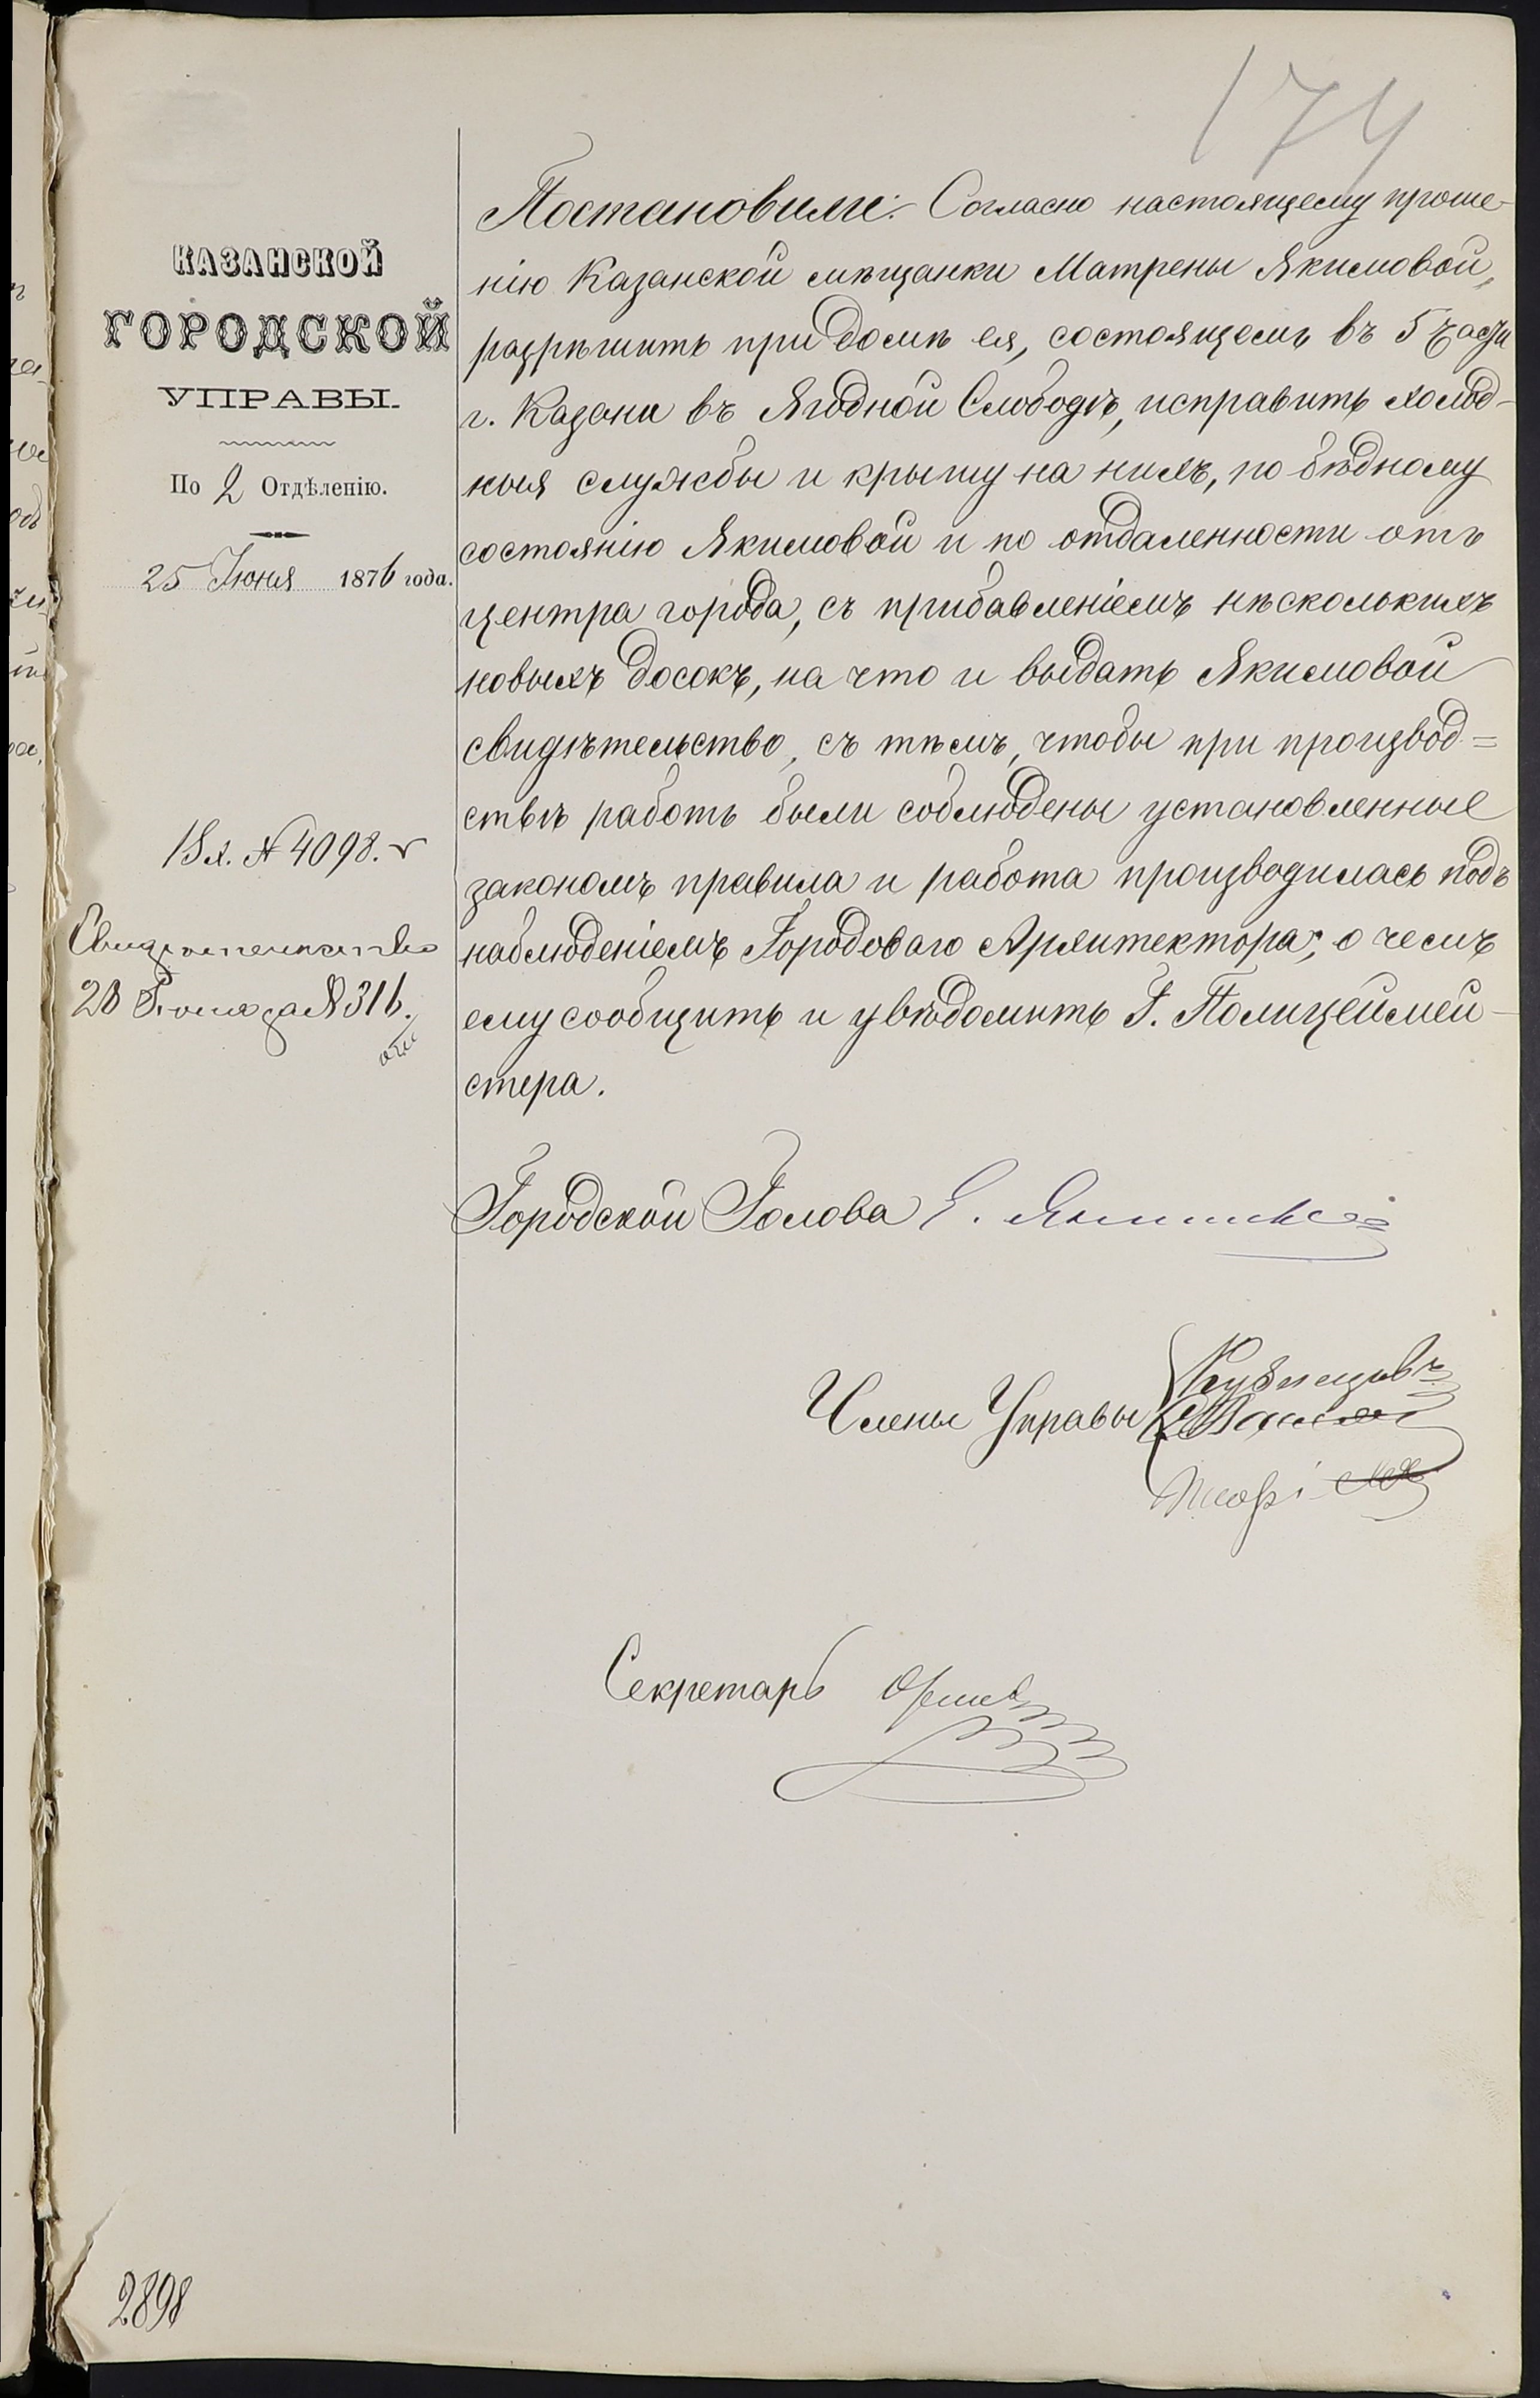 174
КАЗАНСКОЙ
ГОРОДСКОЙ
УПРАВЫ.
По 2 Отдѣленію.
25 Іюня 1876 года.
Вх. № 4098.
Свидѣтельство
28 Іюня за № 316.
Постановили: Согласно настоящему проше-
нію Казанской мѣщанки Матрены Якимовой,
разрѣшить при домѣ ея, состоящемъ въ 5 части
г. Казани въ Ягодной Слободѣ, исправить холод-
ныя службы и крышу на нихъ, по бѣдному
состоянію Якимовой и по отдаленности отъ
центра города, съ прибавленіемъ нѣсколькихъ
новыхъ досокъ, на что и выдать Якимовой
свидѣтельство, съ тѣмъ, чтобы при производ=
ствѣ работъ были соблюдены установленные
закономъ правила и работа производилась подъ
наблюденіемъ Городоваго Архитектора, о чемъ
ему сообщить и увѣдомить Г. Полицеймей-
стера.
Городской Голова
Члены Управы Кузнецовъ
Секретарь
2898